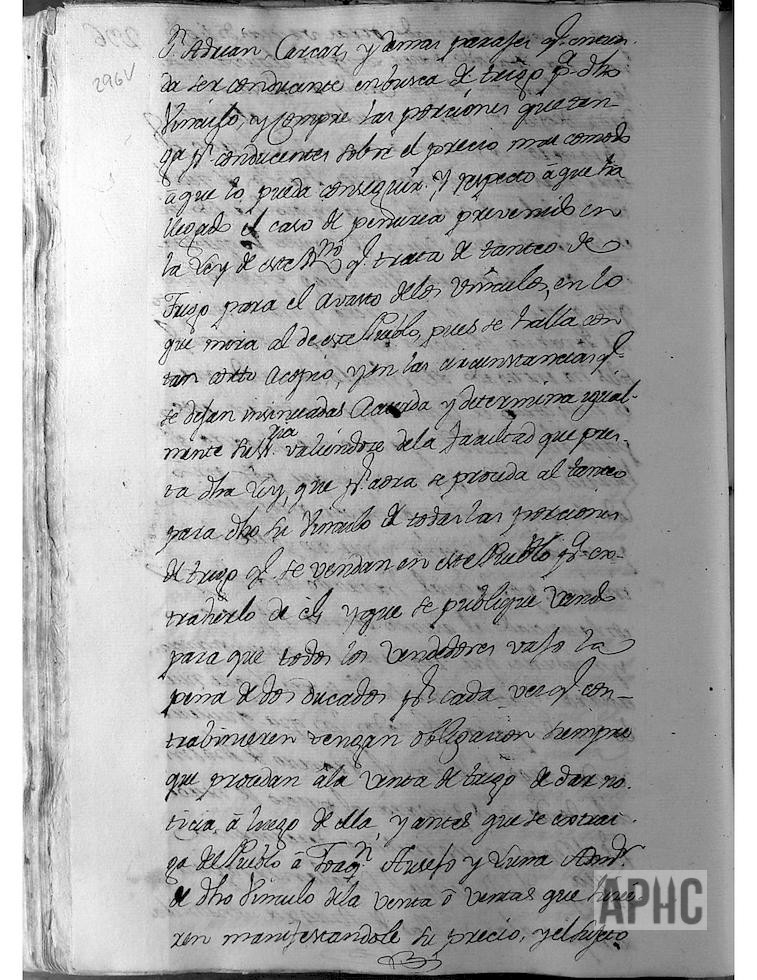 296
296V
Sn. Adrian Carcar, y demas parajes q.e enten-
da ser conducente en busca de trigo p.a dho
Vinculo, y Compre las porciones que ten-
ga p.r conducentes sobre el precio mas comodo
à que lo pueda conseguir. Y respecto à que ha
llegado el caso de penuria prevenido en
la Ley de este Rno q.e trata de tanteo de
Trigo para el avasto delos Vinculos, en lo
que mira al de este Pueblo, pues se halla con
tan corto Acopio, y en las circunstancias q.e
se dejan insinuadas Acuerda y determina igual-
mente su S.ria valiendose dela facultad que pres-
ta dha Ley, que p.r aora se proceda al tanteo
para dho su Vinculo de todas las porciones
de trigo q.e se vendan en este Pueblo p.a ex-
traherlo de el, y que se publique vando
para que todos los vendedores vajo la
pena de dos ducados p.r cada vez q.e con-
trabinieren tengan obligacion siempre
que procedan à la venta de trigo de dar no-
ticia, à luego de ella, y antes que se extrai-
ga del Pueblo à Joaq.n Ausejo y Luna Adm.r
de dho Vinculo dela venta ò ventas que hicie-
ren manifestandole su precio, y el sujeto
APHC